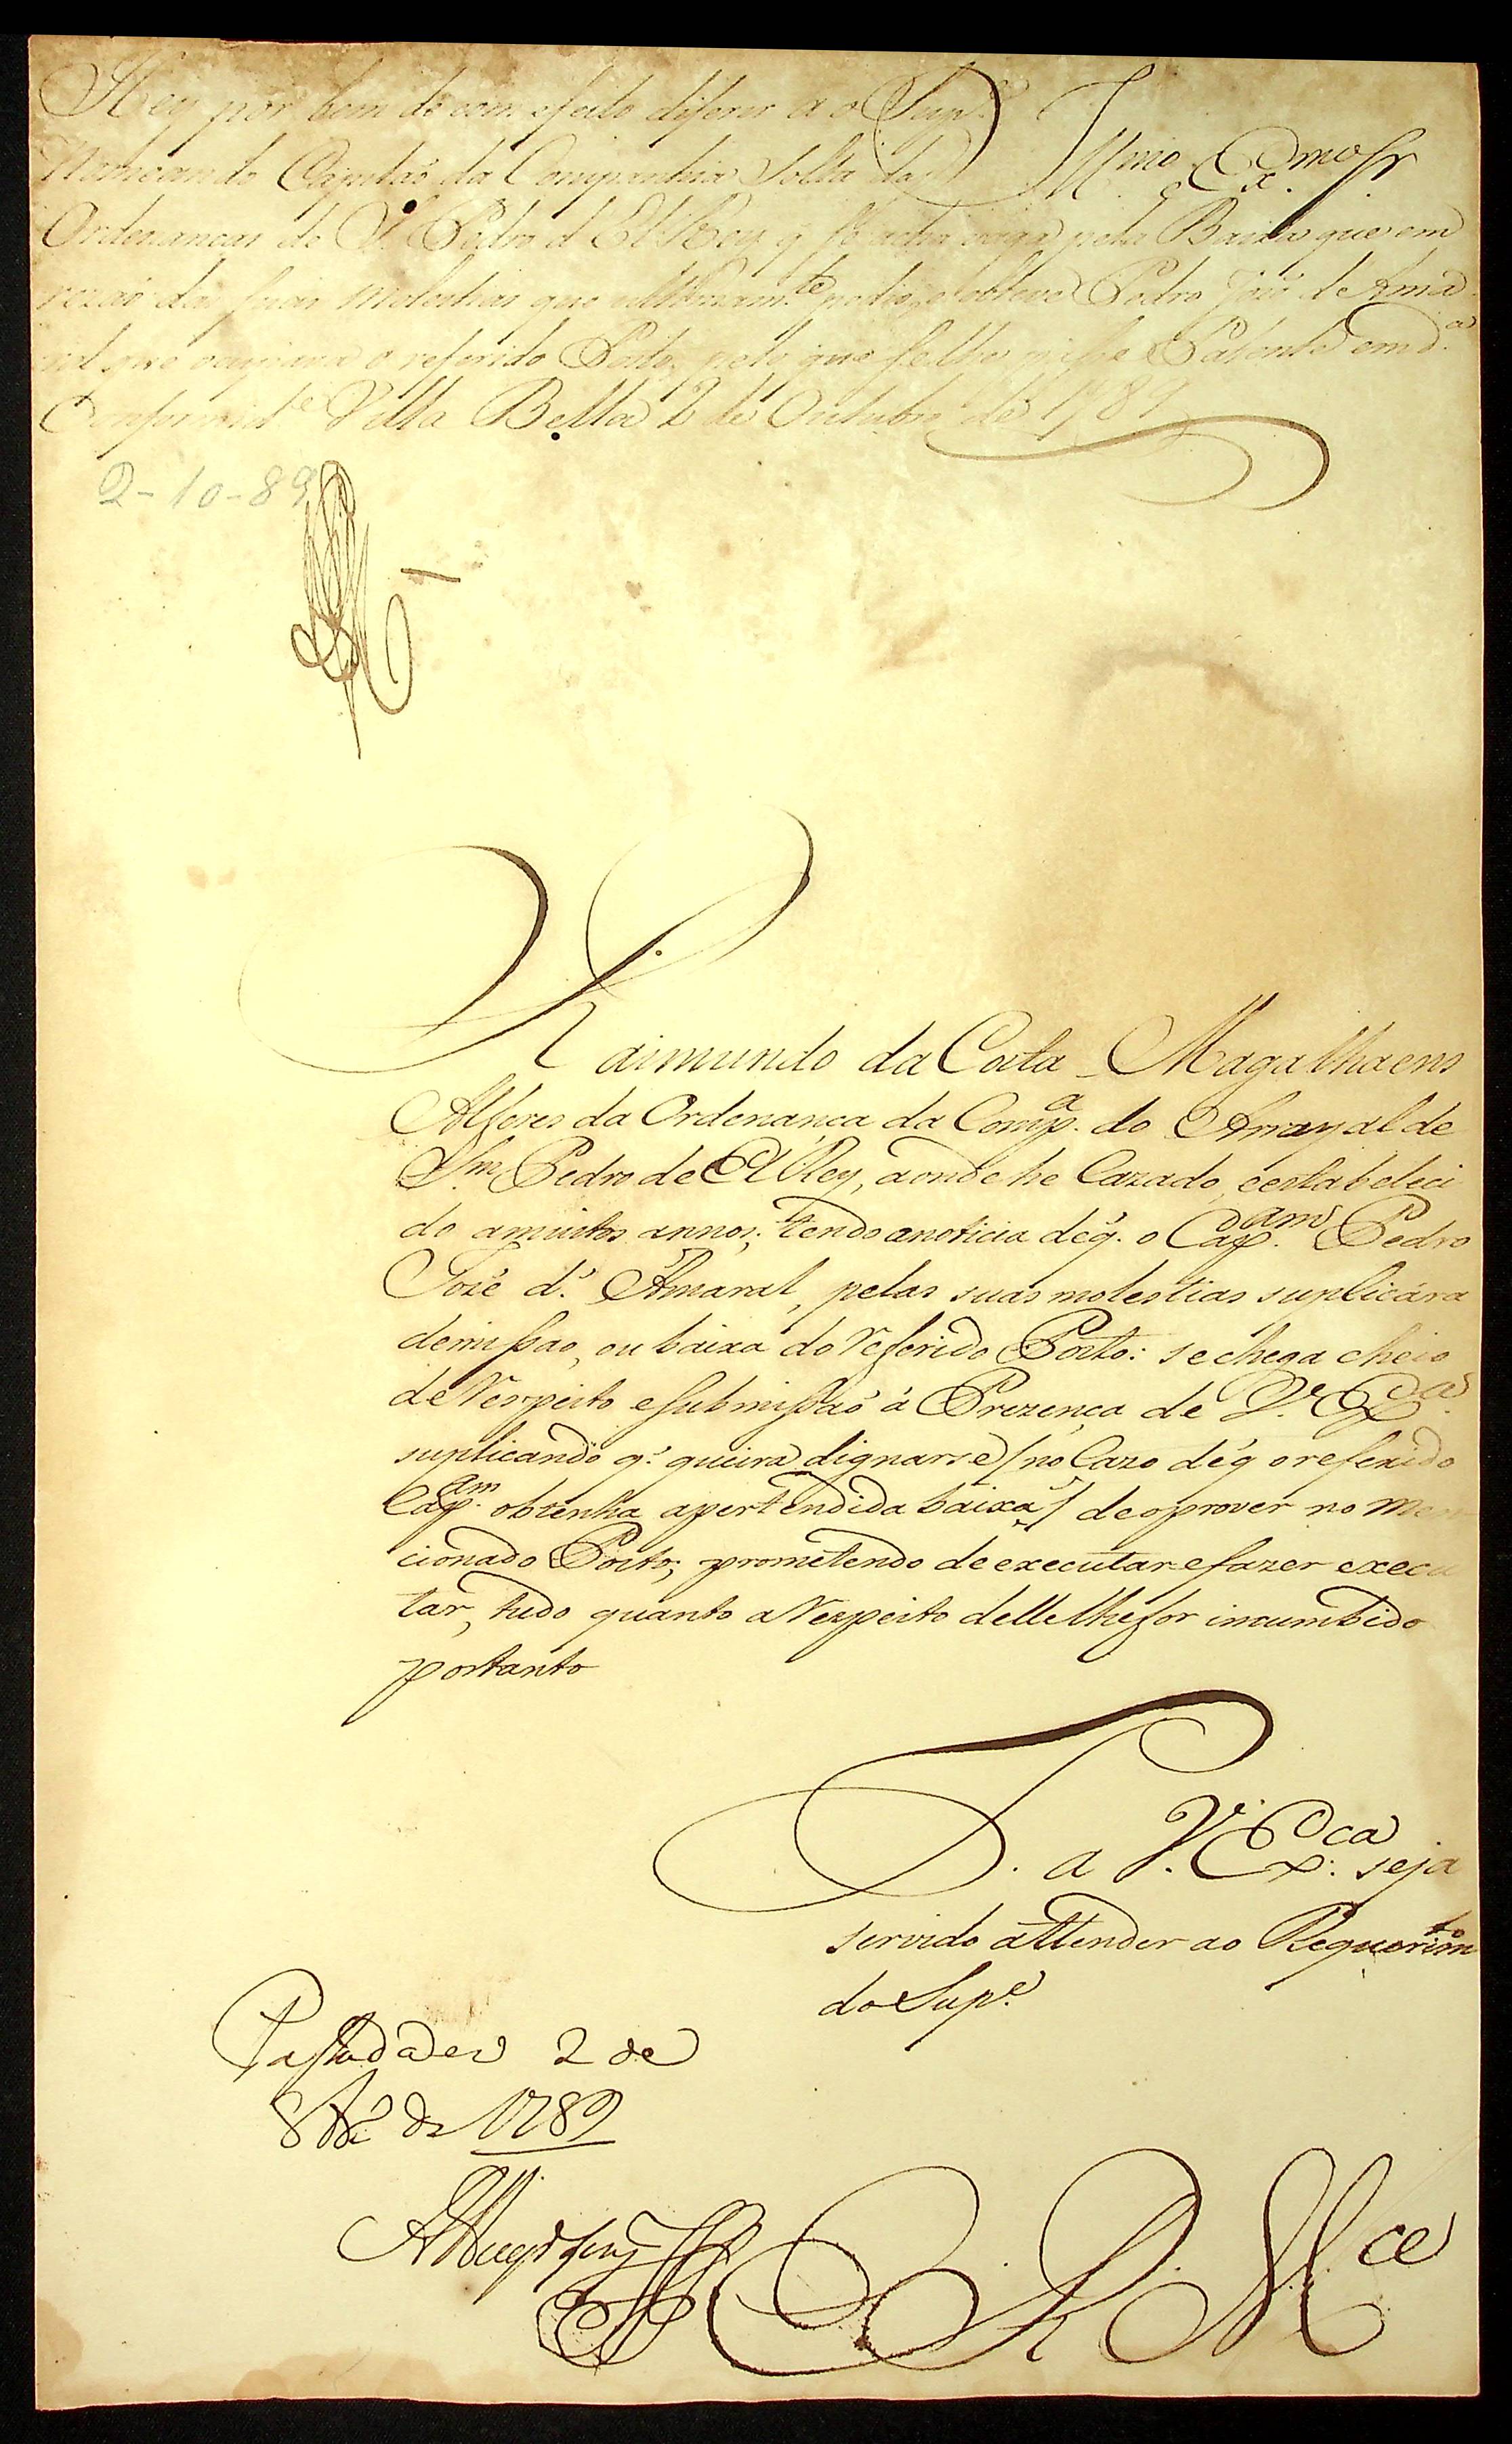 Hey por bem de com efeito diferir a o Sup.e
Nomeando Capitaõ da Companhia solta das
Illmo. e Exmo. Sr.
Ordenanças de S. Pedro d El Rey q se acha vaga pela Baixa que em
rezaõ das suas molestias que ultimam.te pedio, e obteve Pedro José de Ama
ral que ocupava o referido Posto, pelo que se lhe passe Patente em d.a
Conformid.e Villa Bella 2 de Outubro de 1789
2-10-89
Raimundo da Costa Magalhaens
Alferes da Ordenança da Comp.a do Arrayal de
S.m Pedro de El Rey, aonde he Cazado, e estabeleci
do a muitos annos; tendo a noticia de q. o Cap.am Pedro
Jozé d'. Amaral, pelas suas molestias suplicára
demissao, ou baixa do referido Posto: se chega cheio
de respeito e submissaõ á Prezença de V. Ex.ca
suplicando q. queira dignarse (no Cazo de q o referido
Cap.am obtenha a pertendida baixa) de o prover no men
cionado Posto; prometendo de executar e fazer execu
tar, tudo quanto a respeito delle lhe for incumbido
portanto
P. a V. Ex.ca seja
servido attender ao Requerim.to
do Sup.e
Passada em 2 de
8br.o de 1789
E. R. M.ce